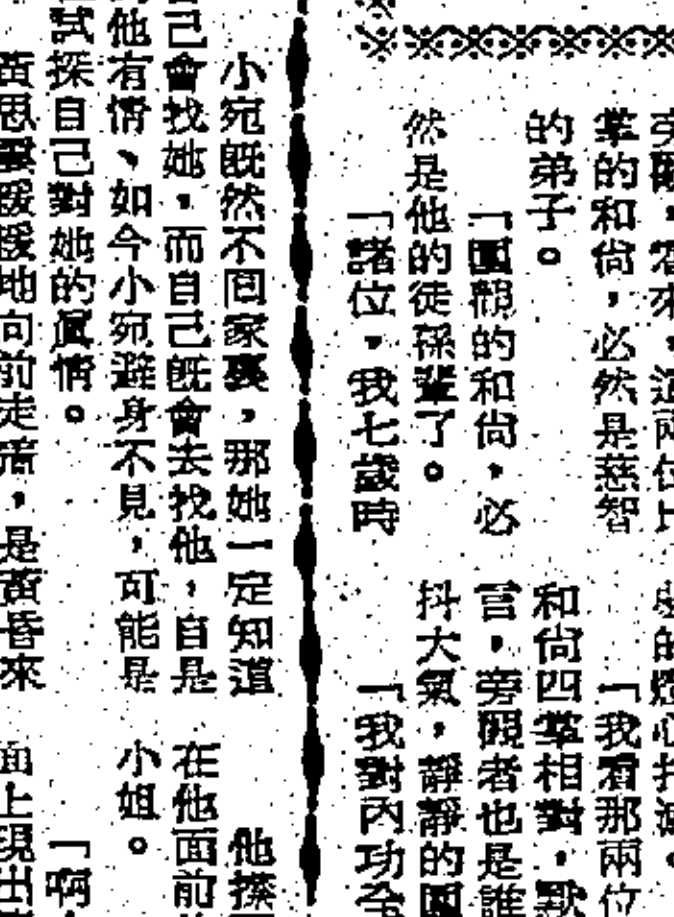 旁觀，看來，這兩位比
掌的和尙，必然是慈智
的弟子。
「圍觀的和尙，必
然是他的徒孫輩了。
「諸位，我七歲時
的燈心打滅。
「我看那兩位
和尙四掌相對，默
言，旁觀者也是誰
抖大氣，靜靜的圍
「我對內功全
小宛旣然不囘家裏，那她一定知道
自己會找她，而自己旣會去找他，自是
他有情、如今小宛避身不見，可能是
試探自己對她的眞情。
黃思靈緩緩地向前走着，是黃昏來
他搽
在他面前
小姐。
「啊
面上現出